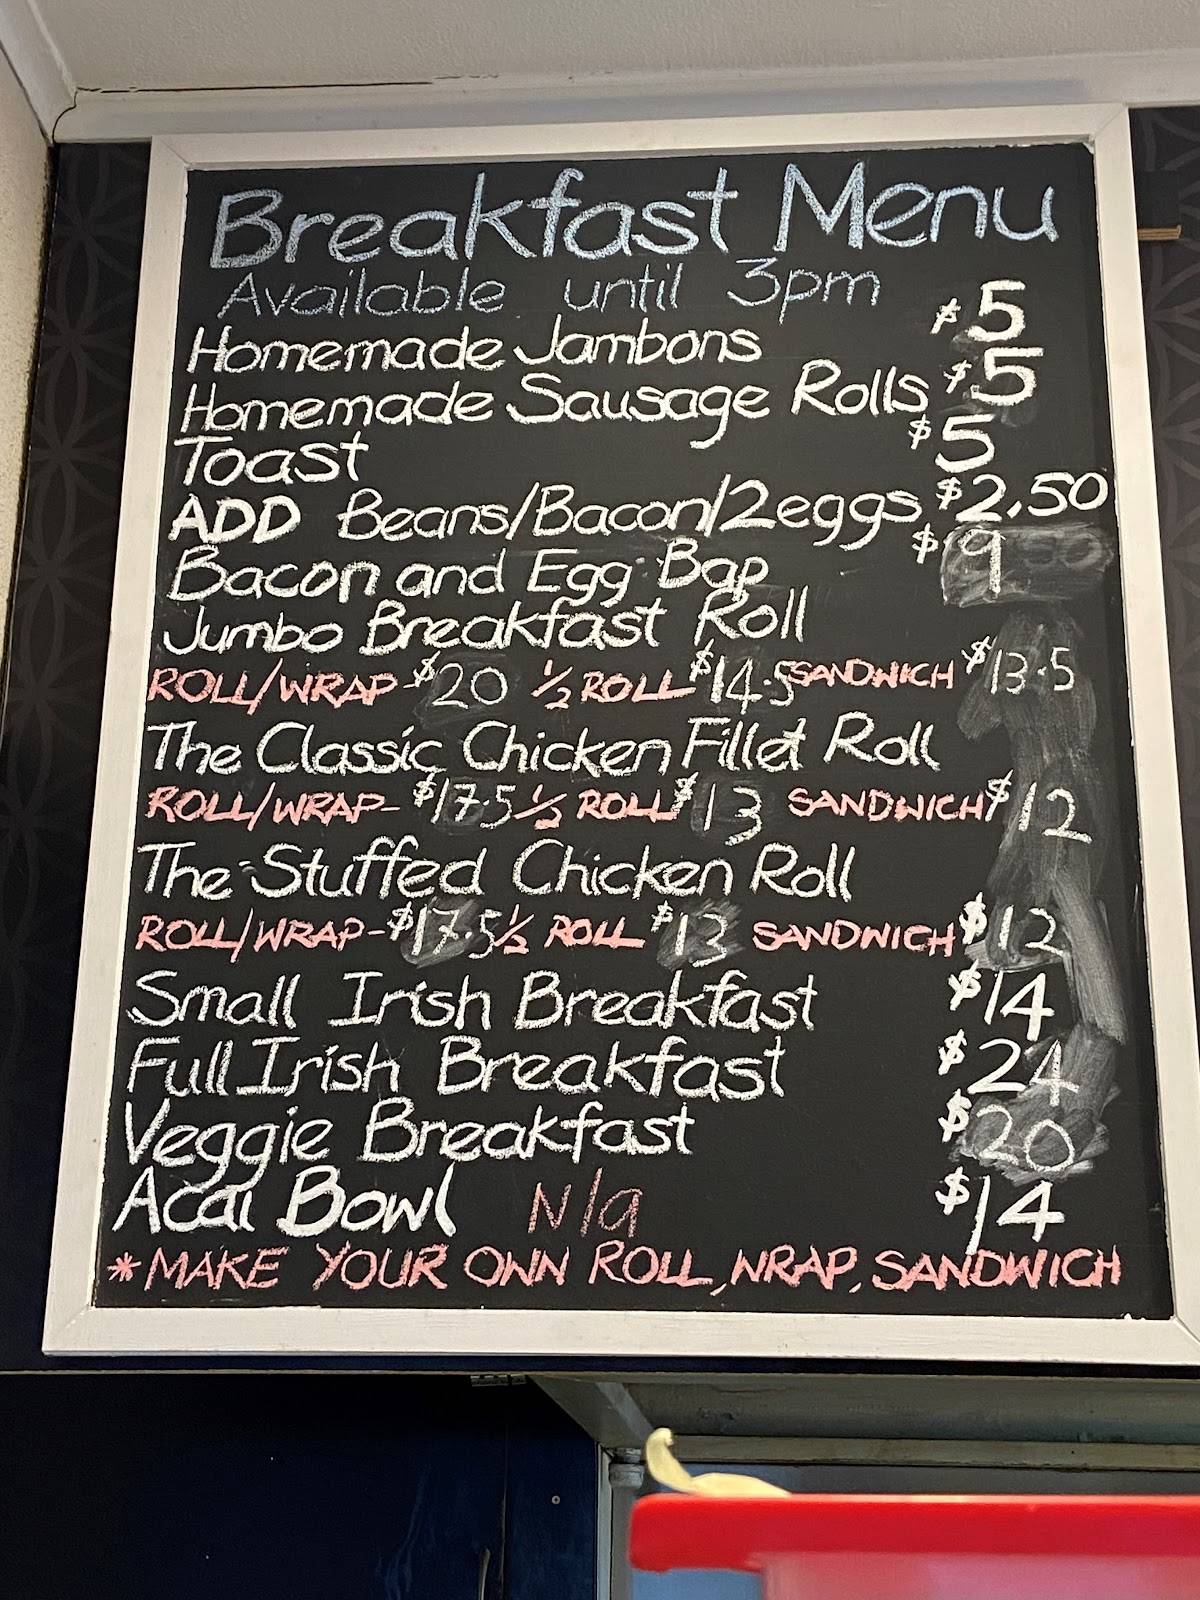 Breakfast Menu
Available until 3pm
Homemade Jambons $5
Homemade Sausage Rolls $5
Toast $5
ADD Beans/Bacon/2eggs $2.50
Bacon and Egg Bap $9
Jumbo Breakfast Roll
ROLL/WRAP-$20 1/2 ROLL $14.5 SANDWICH $13.5
The Classic Chicken Fillet Roll
ROLL/WRAP-$17.5 1/2 ROLL $13 SANDWICH $12
The Stuffed Chicken Roll
ROLL/WRAP-$17.5 1/2 ROLL $13 SANDWICH $12
Small Irish Breakfast $14
Full Irish Breakfast $24
Veggie Breakfast $20
Acai Bowl N/a $14
*MAKE YOUR OWN ROLL, WRAP, SANDWICH